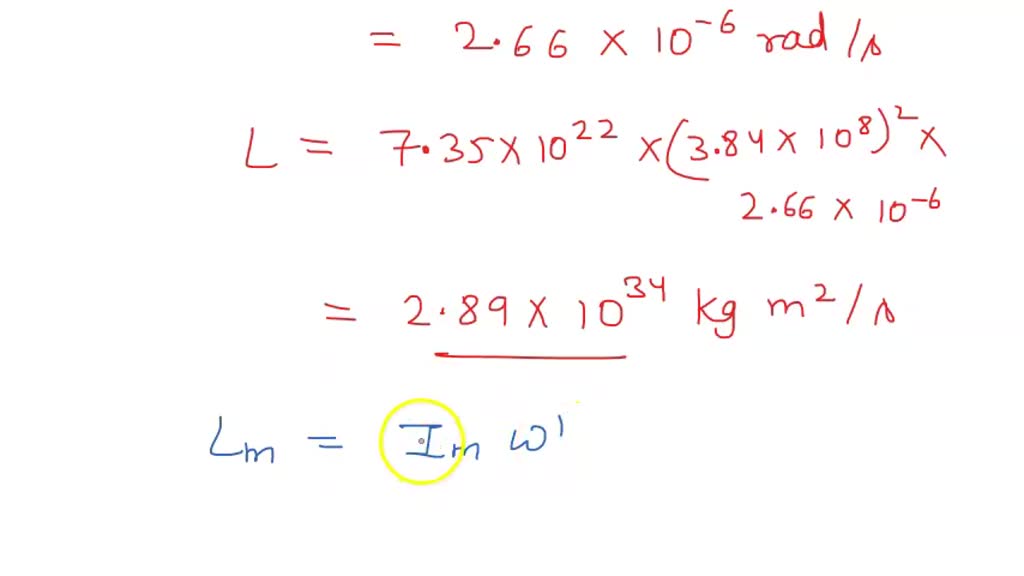 = 2.66 × 10⁻⁶ rad/s
L = 7.35 × 10²² × (3.84 × 10⁸)² ×
2.66 × 10⁻⁶
= 2.89 × 10³⁴ kg m²/s
Lₘ = Iₘ ω'